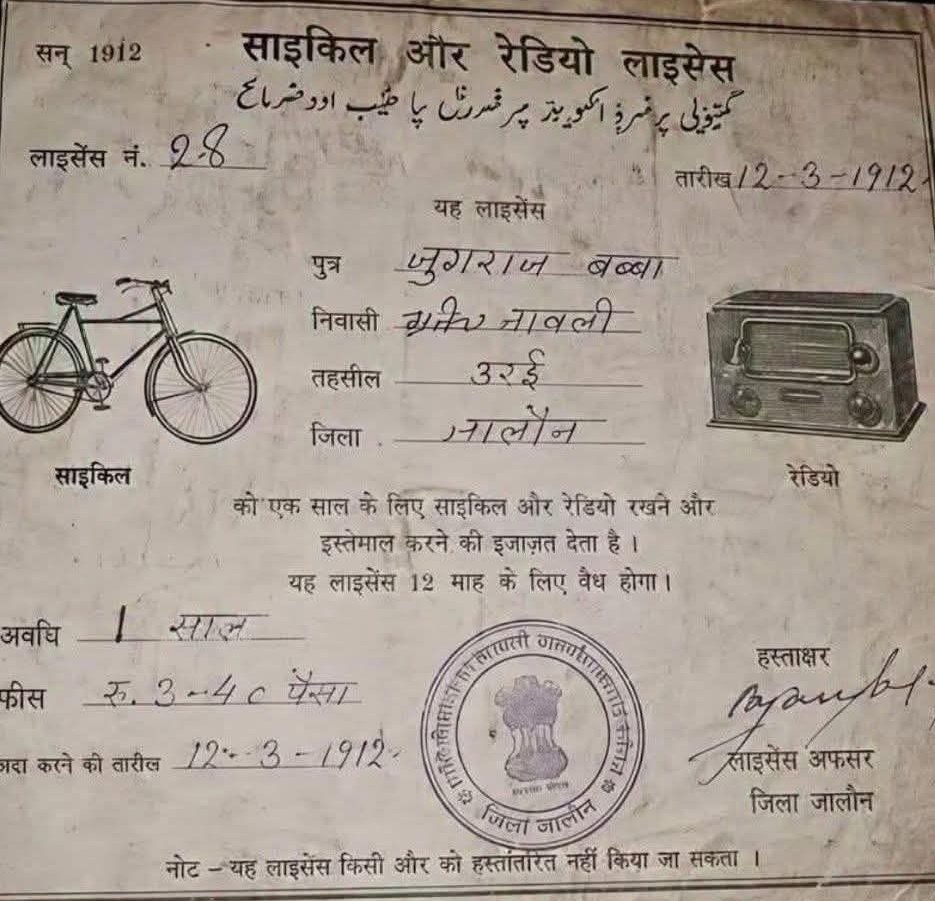 सन् 1912
साइकिल और रेडियो लाइसेस
लाइसेंस नं. 28
तारीख 12-3-1912
यह लाइसेंस
पुत्र जुगराज बब्बा
निवासी नावली
तहसील उरई
जिला जालौन
साइकिल
रेडियो
को एक साल के लिए साइकिल और रेडियो रखने और
इस्तेमाल करने की इजाज़त देता है ।
यह लाइसेंस 12 माह के लिए वैध होगा ।
अवधि 1 साल
फीस रु. 3-40 पैसा
अदा करने की तारील 12-3-1912
जिला जालौन
हस्ताक्षर
लाइसेंस अफसर
जिला जालौन
नोट – यह लाइसेंस किसी और को हस्तांतरित नहीं किया जा सकता ।